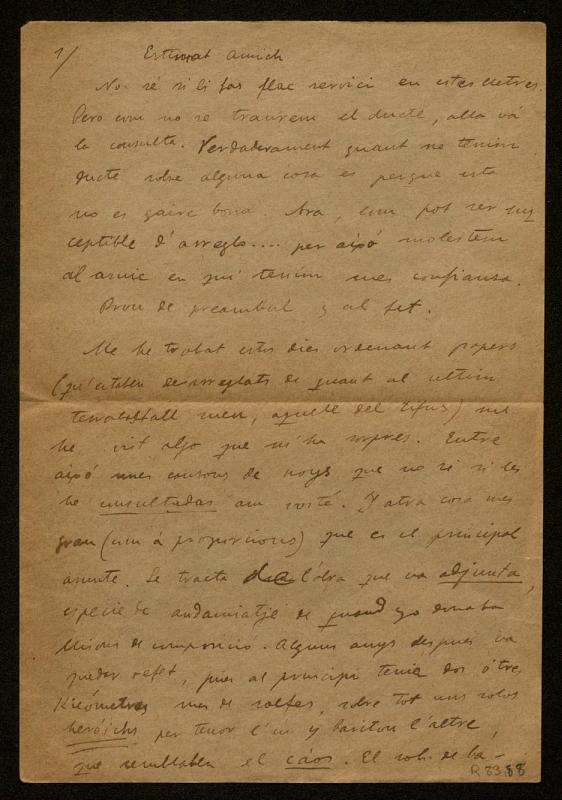 1/ Estimat amich
No sé si li fas flac servici en estes lletres.
Pero com no se traurem el ducte, alla vá
la consulta. Verdaderament quant ne tenim
ducte sobre alguna cosa es perque esta
no es gaire bona. Ara, com pot ser sus
ceptible d'arreglo.... per aixó molestem
al amic en qui tenim mes confiansa.
Prou de preambul y al fet.
Me he trobat estos dies ordenant papers
(qu'estaben desarreglats de quant al ultim
men, aquell del tifus) me
he vist algo que m'ha sorpres. Entre
aixó unes cansons de noys que no sé si les
he consultadas am vosté. Y atra cosa mes
gran (com á proporcions) que es el principal
asunte. Se tracta de l'obra que va adjunta,
especie de andamiatje de quand yo donaba
llisons de composició. Alguns anys despues va
quedar refet, pues al principi tenia dos ó tres
Kilómetres mes de solfes, sobre tot uns solos
heróichs per tenor l'un y bariton l'altre,
que semblaben el cáos. El solo de ba-
R.83.88